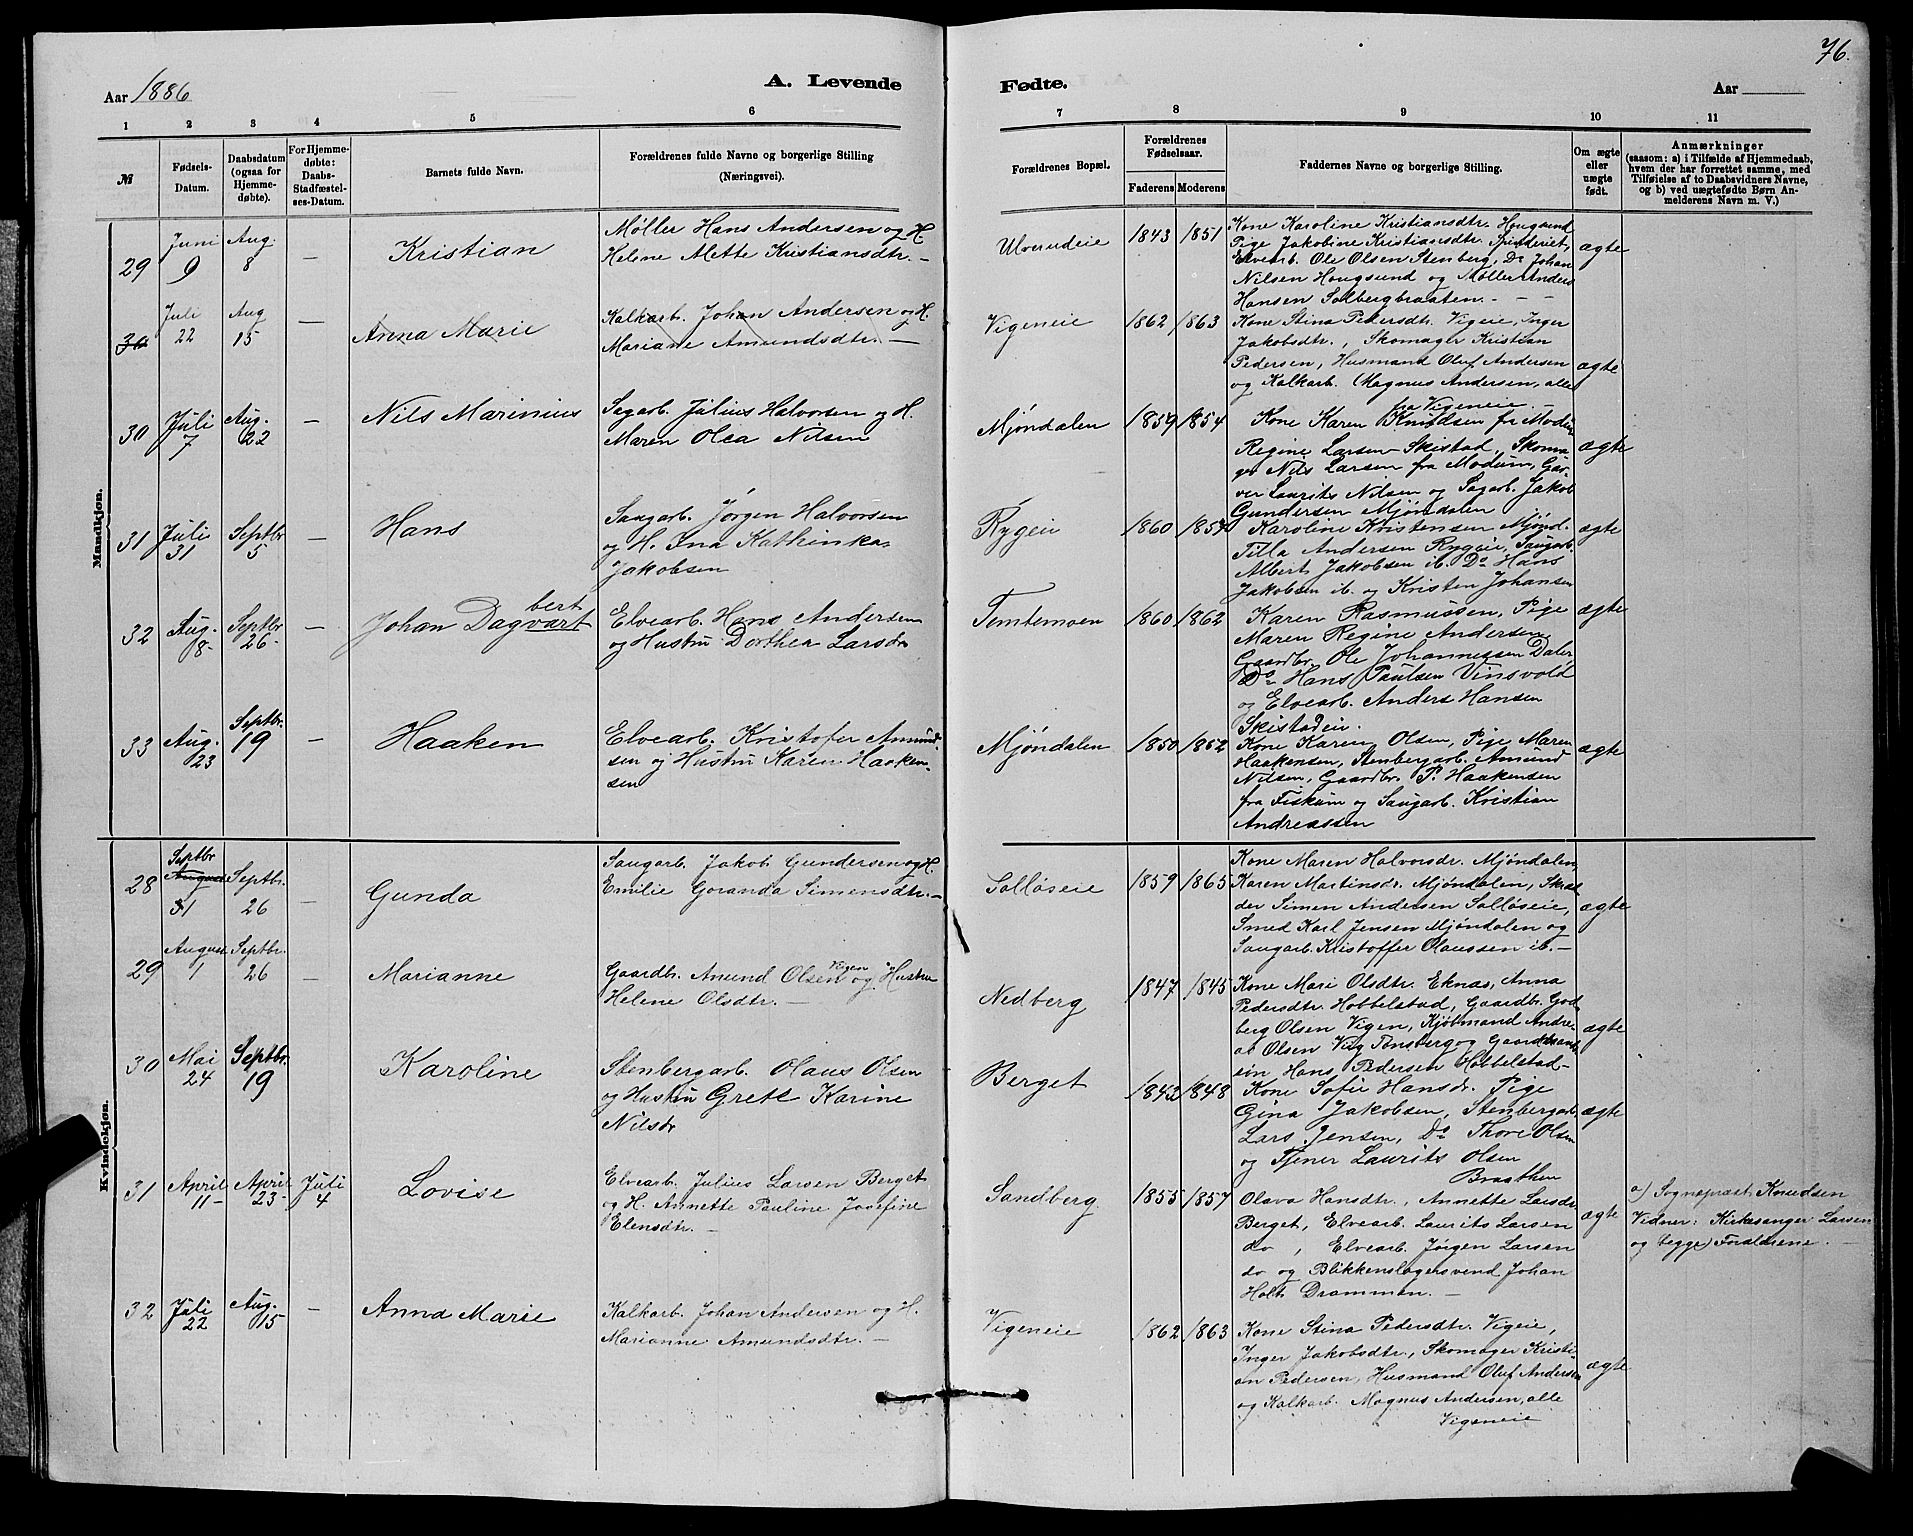 76.
Aar 1886
A. Levende
Fødte.
Aar
1
2
3
4
5
6
7
8
9
10
11
№
Fødsels-
Datum.
Daabsdatum
(ogsaa for
Hjemme-
døbte).
For Hjemme-
døbte:
Daabs-
Stadfæstel-
ses-Datum.
Barnets fulde Navn.
Forældrenes fulde Navne og borgerlige Stilling
(Næringsvei).
Forældrenes Bopæl.
Forældrenes
Fødselsaar.
Faderens
Moderens
Faddernes Navne og borgerlige Stilling.
Om ægte
eller
uægte
født.
Anmærkninger
(saasom: a) i Tilfælde af Hjemmedaab,
hvem der har forrettet samme, med
Tilføielse af to Daabsvidners Navne,
og b) ved uægtefødte Børn An-
melderens Navn m. V.)
Mandkjøn.
29
Juni
9
Aug.
8
—
Kristian
Møller Hans Andersen og H.
Helene Mette Kristiansdtr. —
Ulverudeie
1843
1851
Kone Karoline Kristiansdtr. Hougsund
Pige Jakobine Kristiansdtr. Spinderiet,
Elvearb. Ole Olsen Stenberg, Do Johan
Nilsen Hougsund og Møller Anders
Hansen Solbergbraaten. - — —
ægte
30
Juli
22
Aug
15
—
Anna Marie
Kalkarb. Johan Andersen og H.
Mariane Amundsdtr. —
Vigeneie
1862
1863
Kone Stina Pedersdtr. Vigeie, Inger
Jakobsdtr., Skomager Kristian
Pedersen, Husmand Oluf Andersen
og Kalkarb. Magnus Andersen, alle
fra Vigeneie. —
ægte
30
Juli
7
Aug.
22
—
Nils Marinius
Sagarb. Julius Halvorsen og H.
Maren Olea Nilsen
Mjøndalen
1859
1854
Kone Karen Knudsen fra Modum
Regine Larsen Skistad, Skoma-
ger Nils Larsen fra Modum, Gar-
ver Laurits Nilsen og Sagarb. Jakob
Gundersen Mjøndalen
ægte
31
Juli
31
Septbr
5
—
Hans
Saugarb. Jørgen Halvorsen
og H. Ina Kathinka
Jakobsen
Rygeie
1860
1857
Karoline Kristensen Mjønd.
Tilla Andersen Rygeie, Saugarb.
Albert Jakobsen ib. Do Hans
Jakobsen ib. og Kristen Johansen
ægte
32
Aug.
8
Septbr
26
—
bert
Johan Dagvart
Elvearb. Hans Andersen
og Hustru Dorthea Larsdr
Temtemoen
1860
1862
Karen Rasmussen, Pige
Maren Regine Andersen
Gaardbr. Ole Johannessen Daler
Do Hans Paulsen Vinsvold
og Elvearb. Anders Hansen
Skistadeie.
ægte
33
Aug.
23
Septbr.
19
—
Haaken
Elvearb. Kristofer Amund-
sen og Hustru Karen Haaken-
sen
Mjøndalen
1850
1852
Kone Karen Olsen, Pige Maren
Haakensen, Stenbergarb. Amund
Nilsen, Gaardbr. P. Haakensen
fra Fiskum og Saugarb. Kristian
Andreassen
ægte
Kvindekjøn.
28
Septbr
August
31
Septbr.
26
—
Gunda
Saugarb. Jakob Gundersen og H.
Emilie Goranda Simensdtr. —
Solløseie
1859
1865
Kone Maren Halvorsdr. Mjøndalen,
Karen Martinsdr. Mjøndalen, Skræd-
der Simen Andersen Solløseie,
Smed Karl Jensen Mjøndalen og
Saugarb. Kristoffer Olaussen ib. —
ægte
29
August
1
Septbr.
26
—
Marianne
Gaardbr. Amund Olsen Vigen og Hustru
Helene Olsdtr. —
Nedberg
1847
1845
Kone Mari Olsdtr. Eknas, Anna
Pedersdtr. Hobbelstad, Gaardbr. God-
berg Olsen Vigen, Kjøbmand Andre-
as Olsen Viig Tønsberg og Gaardmands-
søn Hans Pedersen Hobbelstad —
ægte
30
Mai
24
Septbr.
19
Karoline
Stenbergarb. Olaus Olsen
og Hustru Grete Karine
Nilsdr
Berget
1843
1848
Kone Sofie Hansdr. Pige
Gina Jakobsen, Stenbergarb.
Lars Jensen, Do Thore Olsen
og Tjener Laurits Olsen
Braathen
ægte
31
April
11
April
23
Juli
4
Lovise
Elvearb. Julius Larsen Berget
og H. Annette Pauline Josefine
Elensdtr. —
Sandberg
1855
1857
Olava Hansdtr., Annette Larsdr
Berget, Elvearb. Laurits Larsen
do, Elvearb. Jørgen Larsen
do og Blikkenslagersvend Johan
Holt Drammen. —
ægte
a) Sognepræst Knudsen
Vidner: Kirkesanger Larsen
og begge Forældrene. —
32
Juli
22
Aug.
15
—
Anna Marie
Kalkarb. Johan Andersen og H.
Marianne Amundsdtr. —
Vigeneie
1862
1863
Kone Stina Pedersdtr. Vigeie,
Inger Jakobsdtr., Skomager Kristi-
an Pedersen, Husmand Oluf Andersen
og Kalkarb. Magnus Andersen, alle
Vigeneie
ægte